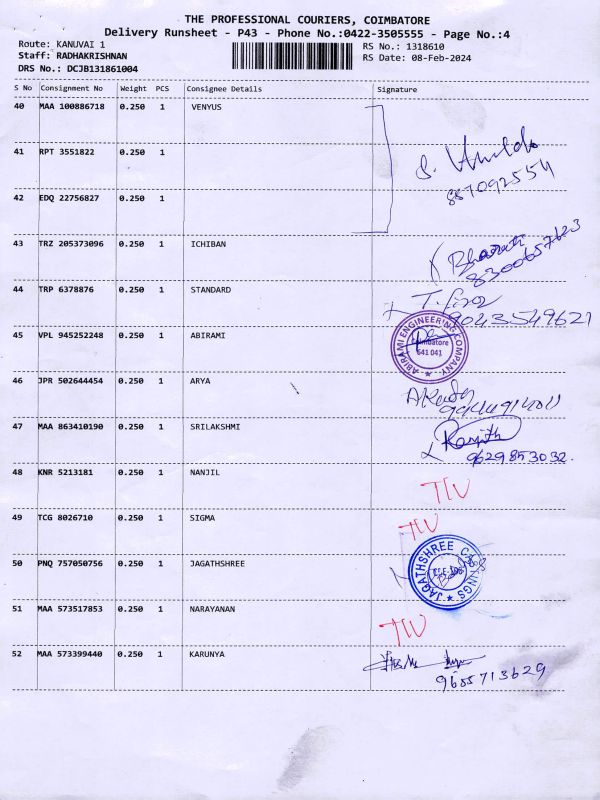 THE PROFESSIONAL COURIERS, COIMBATORE
Delivery Runsheet - P43 - Phone No.:0422-3505555 - Page No.:4
Route: KANUVAI 1
RS No.: 1318610
Staff: RADHAKRISHNAN
RS Date: 08-Feb-2024
DRS No.: DCJB131861004
S No Consignment No Weight PCS Consignee Details Signature
40 MAA 100886718 0.250 1 VENYUS
41 RPT 3551822 0.250 1
42 EDQ 22756827 0.250 1
43 TRZ 205373096 0.250 1 ICHIBAN
Bharati
8300657623
44 TRP 6378876 0.250 1 STANDARD
9043549621
45 VPL 945252248 0.250 1 ABIRAMI
ABIRAMI ENGINEERING COMPANY
Coimbatore
641 041
46 JPR 502644454 0.250 1 ARYA
47 MAA 863410190 0.250 1 SRILAKSHMI
Ranjith
9629853032.
48 KNR 5213181 0.250 1 NANJIL
49 TCG 8026710 0.250 1 SIGMA
50 PNQ 757050756 0.250 1 JAGATHSHREE
51 MAA 573517853 0.250 1 NARAYANAN
52 MAA 573399440 0.250 1 KARUNYA
9655713629